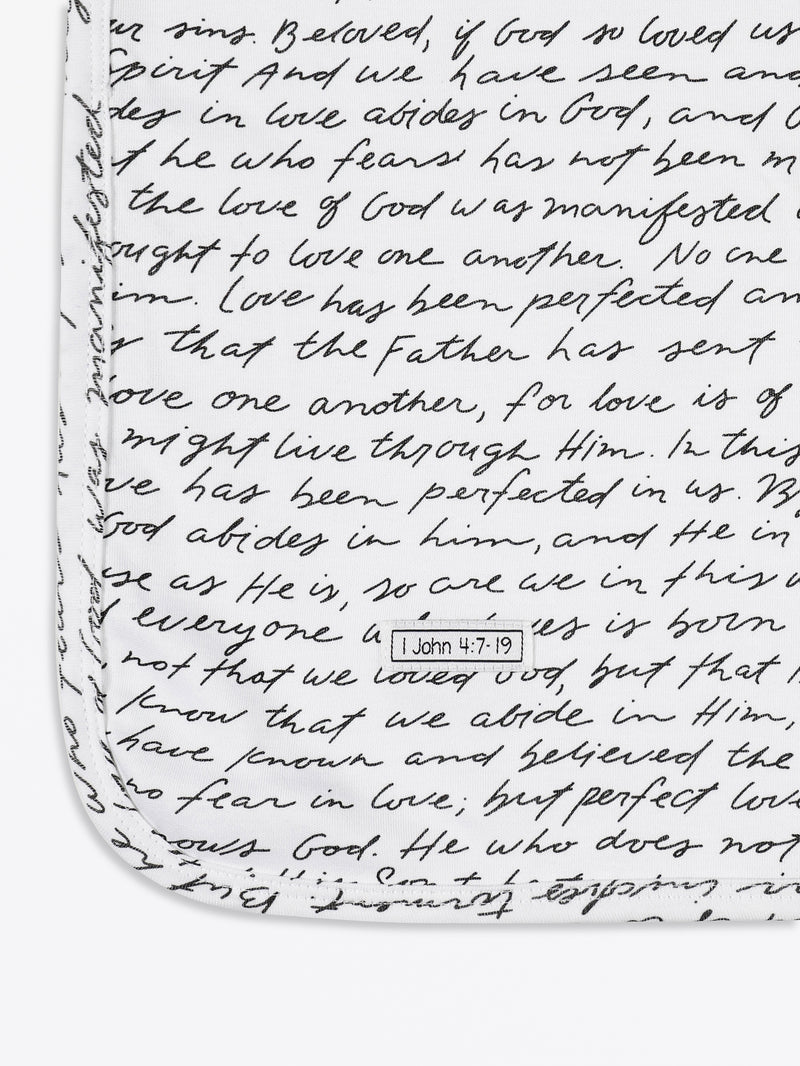 ur sins. Beloved, if God so loved us
Spirit And we have seen and
des in love abides in God, and G
t he who fears has not been m
the love of God was manifested
ought to love one another. No one
im. Love has been perfected am
that the Father has sent
ove one another, for love is of
might live through Him. In this
ve has been perfected in us. By
God abides in him, and He in
se as He is, so are we in this w
everyone ues is born
1 John 4:7-19
not that we loved God, but that H
know that we abide in Him,
have known and believed the
no fear in love; but perfect love
nows God. He who does not
who manifested
was
God
But he
torment. But